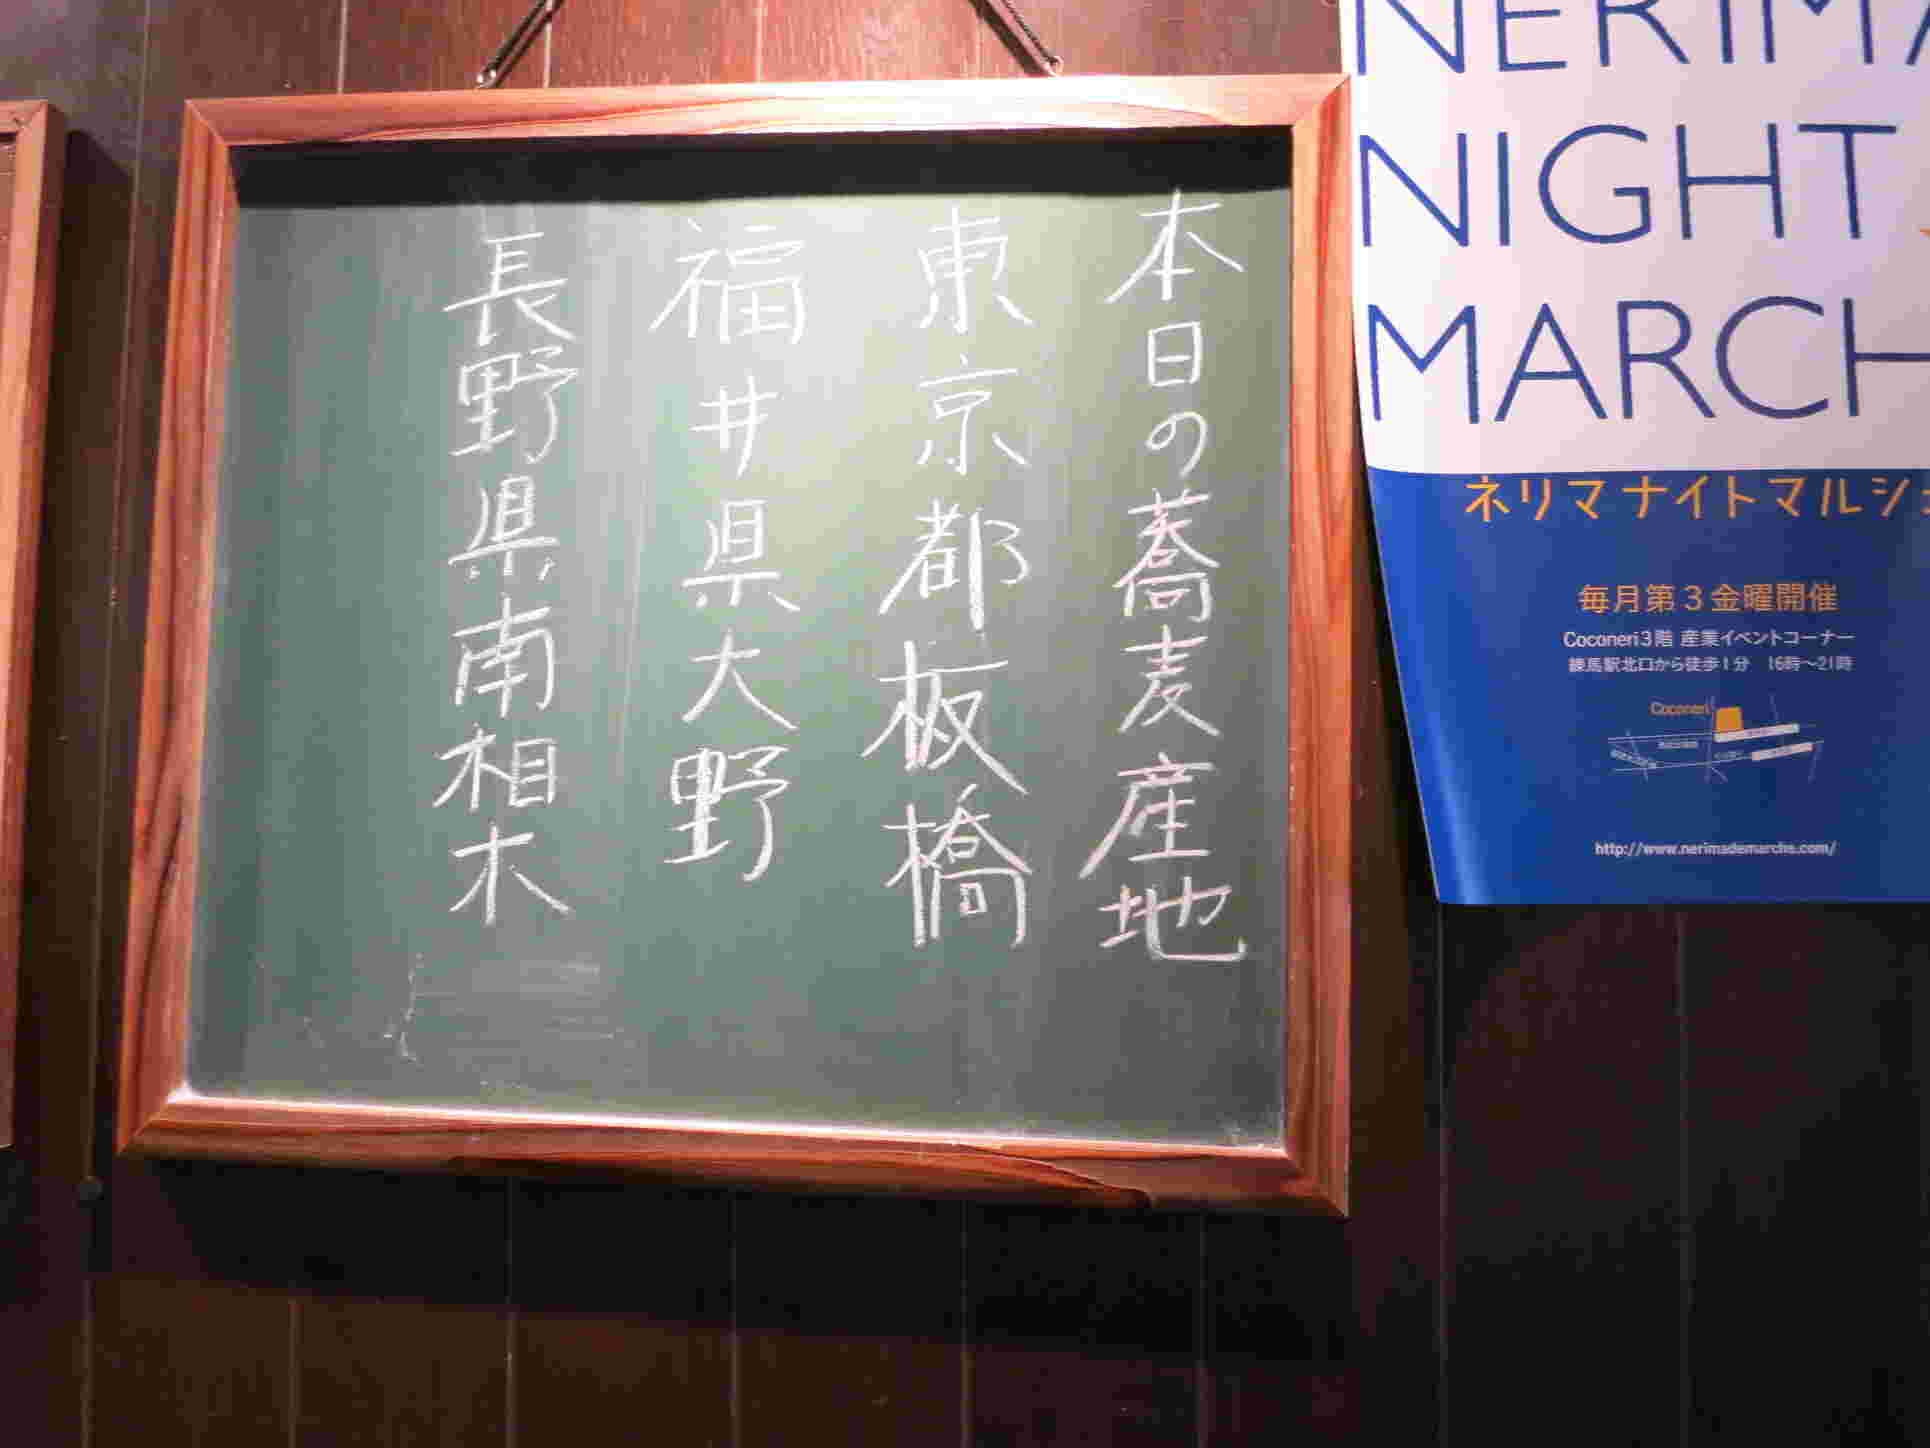 本日の蕎麦産地
東京都板橋
福井県大野
長野県南相木
NERIMA
NIGHT
MARCH
ネリマナイトマルシェ
毎月第3金曜開催
Coconeri3階 産業イベントコーナー
練馬駅北口から徒歩1分 16時～21時
Coconeri
http://www.nerimademarche.com/